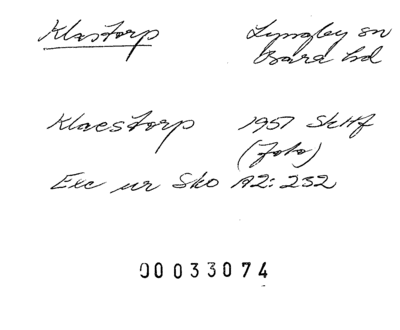 Klastorp Lyngby sn
Bara hd
Klaestorp 1957 SkHf
(foto)
Exc ur Sko A2:232
00033074